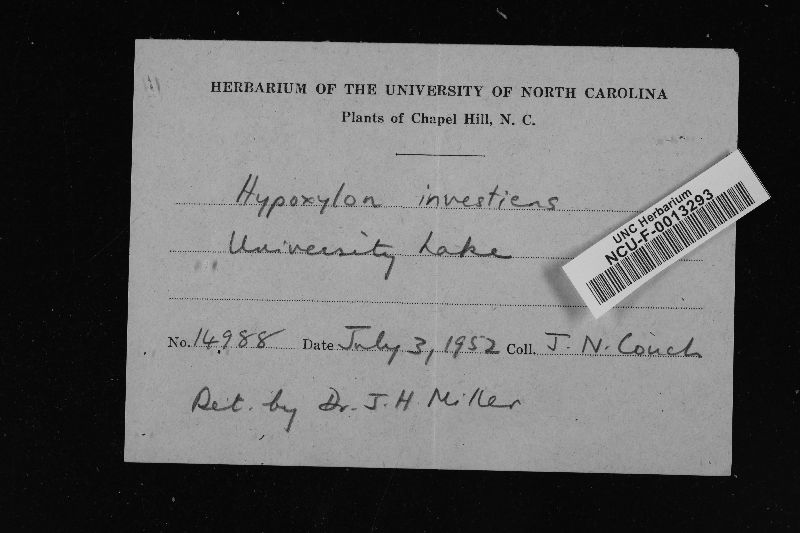 HERBARIUM OF THE UNIVERSITY OF NORTH CAROLINA
Plants of Chapel Hill, N. C.
Hypoxylon investiens
University Lake
UNC Herbarium
NCU-F-0013293
No. 14988 Date July 3, 1952 Coll. J. N. Couch
Det. by Dr. J. H Miller